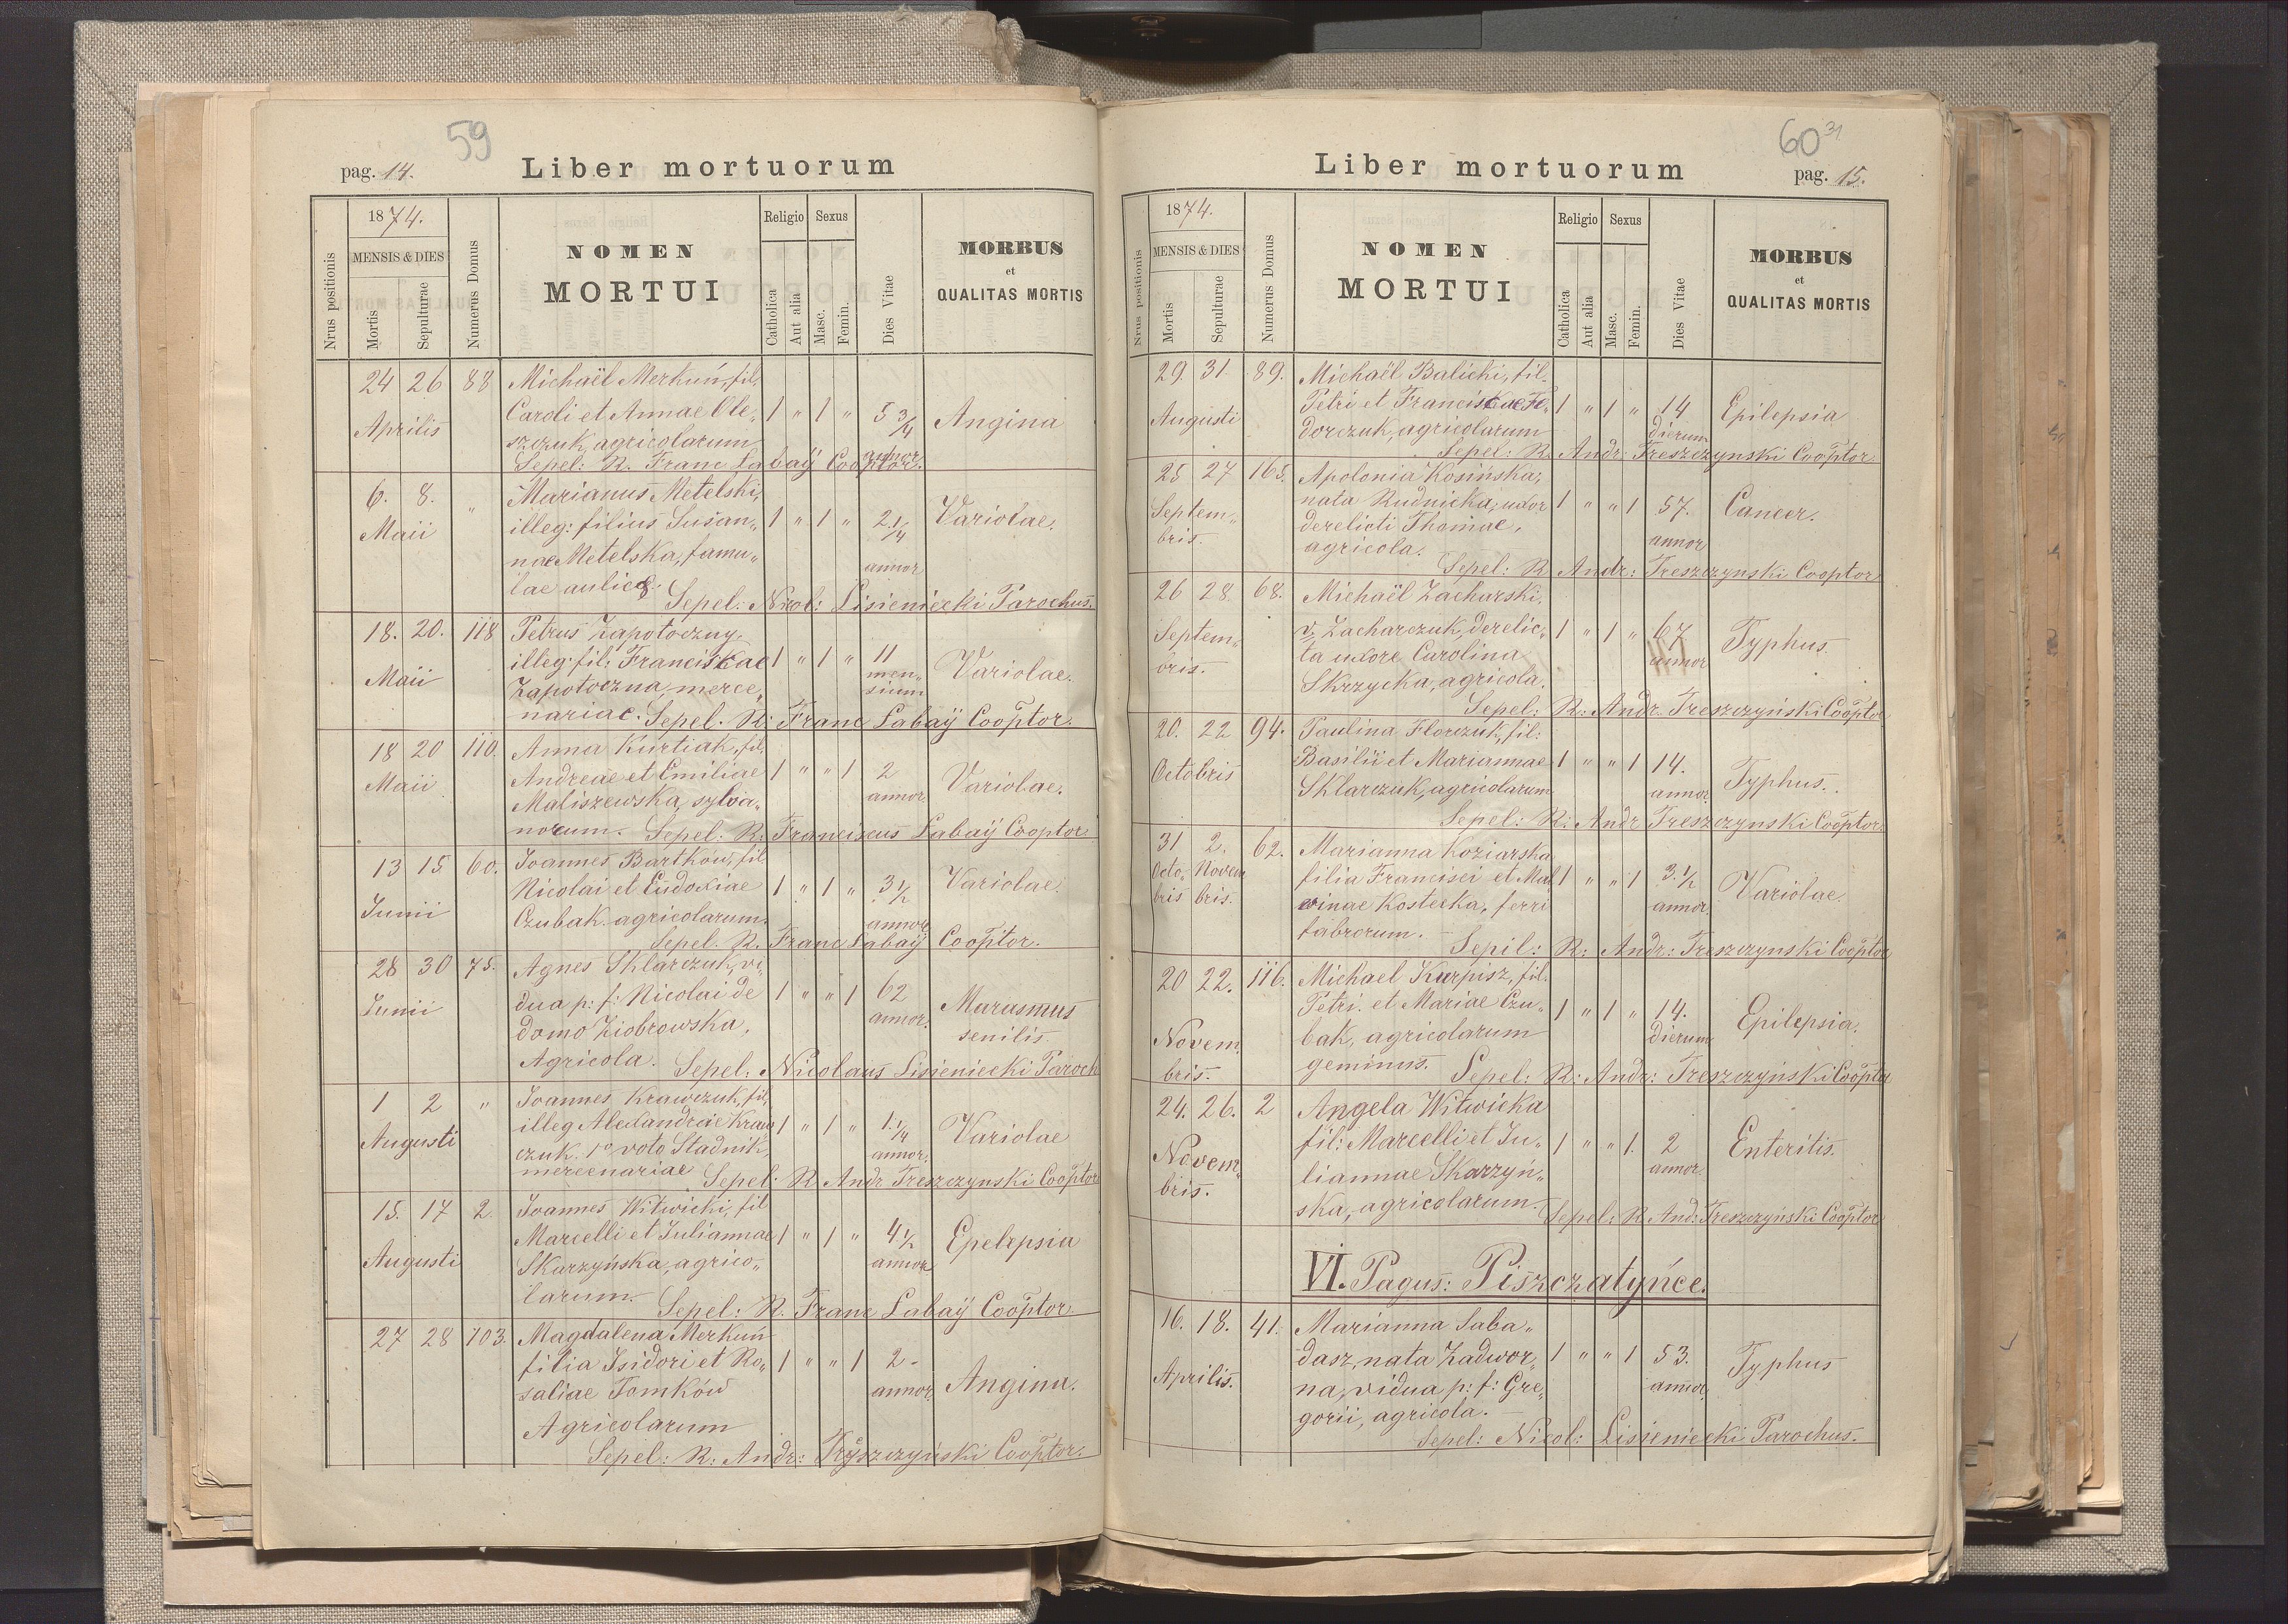 59
pag. 14. Liber mortuorum
Nrus positionis
1874.
MENSIS & DIES
Mortis
Sepulturae
Numerus Domus
NOMEN
MORTUI
Religio
Catholica
Aut alia
Sexus
Masc.
Femin.
Dies Vitae
MORBUS
et
QUALITAS MORTIS
24 26 88 Michaël Merkuń, fil.
Aprilis Caroli et Annae Ole„ 1 „ 1 „ 5 3/4 Angina
szczuk, agricolarum annor
Sepel: R. Franc Labaÿ Cooptor.
6. 8. „ Marianus Metelski,
Maii illeg: filius Susan„ 1 „ 1 „ 2 1/4 Variolae.
nae Metelska, famu„ annor
lae aulicae. Sepel: Nicol: Lisieniecki Parochus.
18. 20. 118 Petrus Zapotoczny.
Maii illeg. fil: Franciskae 1 „ 1 „ 11 Variolae.
Zapotoczna, merce„ men„
nariae. sium
Sepel. R: Franc Labaÿ Cooptor.
18 20 110. Anna Kurtiak, fil,
Maii Andreae et Emiliae 1 „ „ 1 2 Variolae.
Maliszewska, sylva„ annor
norum. Sepel. R: Franciscus Labaÿ Cooptor
13 15 60. Joannes Bartków, fil
Junii Nicolai et Eudoxiae 1 „ 1 „ 3 1/2 Variolae.
Czubak. agricolarum. annor
Sepel. R. Franc Labaÿ Cooptor.
28 30 75. Agnes Sklarczuk, vi„
Junii dua p: f: Nicolai de 1 „ „ 1 62 Marasmus
domo Ziobrowska, annor. senilis.
Agricola. Sepel: Nicolaus Lisieniecki Paroch
1 2 „ Joannes Krawczuk, fil,
Augusti illeg Alexandrae Kraw 1 „ 1 „ 1 1/4 Variolae
czuk. 1º voto Stadnik, annor.
mercenariae Sepel: R. Andr Treszczynski Cooptor
15. 17 2. Joannes Witwicki, fil
Augusti Marcelli et Juliannae 1 „ 1 „ 4 1/2 Epelepsia
Skarzyńska, agrico„ annor
larum. Sepel: R. Franc Labaÿ Cooptor
27 28 103. Magdalena Merkuń
filia Isidori et Ro„ 1 „ „ 1 2- Angina.
saliae Tomków annor
Agricolarum
Sepel: R: Andr: Tryszczyński Cooptor.
60 31
Liber mortuorum pag. 15.
Nrus positionis
1874.
MENSIS & DIES
Mortis
Sepulturae
Numerus Domus
NOMEN
MORTUI
Religio
Catholica
Aut alia
Sexus
Masc.
Femin.
Dies Vitae
MORBUS
et
QUALITAS MORTIS
29. 31. 89. Michaël Balicki, fil.
Augusti Petri et Franciscae Fe„ 1 „ 1 „ 14 Epilepsia
dorczuk, agricolarum dierum
Sepel: R. Andr: Treszczynski Cooptor
25 27 165. Apolonia Kosińska,
Septem„ nata Rudnicka, uxor 1 „ „ 1 57. Cancer.
bris. derelicti Thomae, annor
agricola.
Sepel: R Andr: Treszczynski Cooptor
26 28. 68. Michaël Zacharski,
Septem„ v. Zacharczuk, derelic„ 1 „ 1 „ 67 Typhus.
bris. ta uxore Carolina annor
Skrzycka, agricola.
Sepel: R: Andr. Treszczyński Cooptor
20. 22 94. Paulina Florczuk, fil:
Octobris Basilii et Mariannae 1 „ „ 1 14. Typhus.
Sklarczuk, agricolarum annor.
Sepel: R: Andr Treszczynski Cooptor.
31 2. 62. Marianna Koziarska
Octo„ Novem filia Francisci et Mal 1 „ „ 1 3. 1/2 Variolae.
bris bris. winae Kostecka, ferri annor.
fabrorum.
Sepil: R: Andr: Treszczynski Cooptor
20 22. 116. Michael Karpisz, fil.
Petri. et Mariae Czu„ 1 „ 1 „ 14. Epilepsia.
Novem„ bak, agricolarum dierum
bris. geminus. Sepel: R: Andr: Treszczyński Cooptor
24. 26. 2 Angela Witwicka
Novem„ fil: Marcelli et Ju„ 1 „ „ 1. 2 Enteritis.
bris. liannae Skarzyń„ annor
ska, agricolarum.
Sepel: R. And: Treszczyński Cooptor
VI. Pagus: Piszczatyńce.
16. 18. 41. Marianna Saba„
Aprilis. dasz, nata Zadwor„ 1 „ „ 1 53. Typhus
na, vidua p: f: Gre„ annor.
gorii, agricola.
Sepel: Nicol: Lisieniecki Parochus.